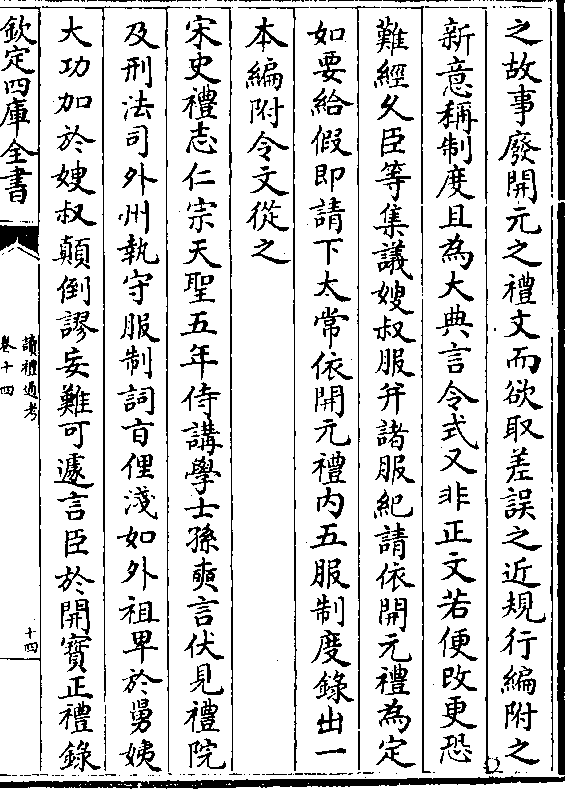 之故事廢開元之禮文而欲取差誤之近規行編附之
新意稱制度且為大典言令式又非正文若便改更恐
難經久臣等集議嫂叔服并諸服紀請依開元禮為定
如要給假即請下太常依開元禮内五服制度錄出一
本編附令文從之
宋史禮志仁宗天聖五年侍講學士孫奭言伏見禮院
及刑法司外州執守服制詞旨俚淺如外祖卑於舅姨
大功加於嫂叔顛倒謬妄難可遽言臣於開寳正禮錄
欽定四庫全書
讀禮通考
卷十四
十四